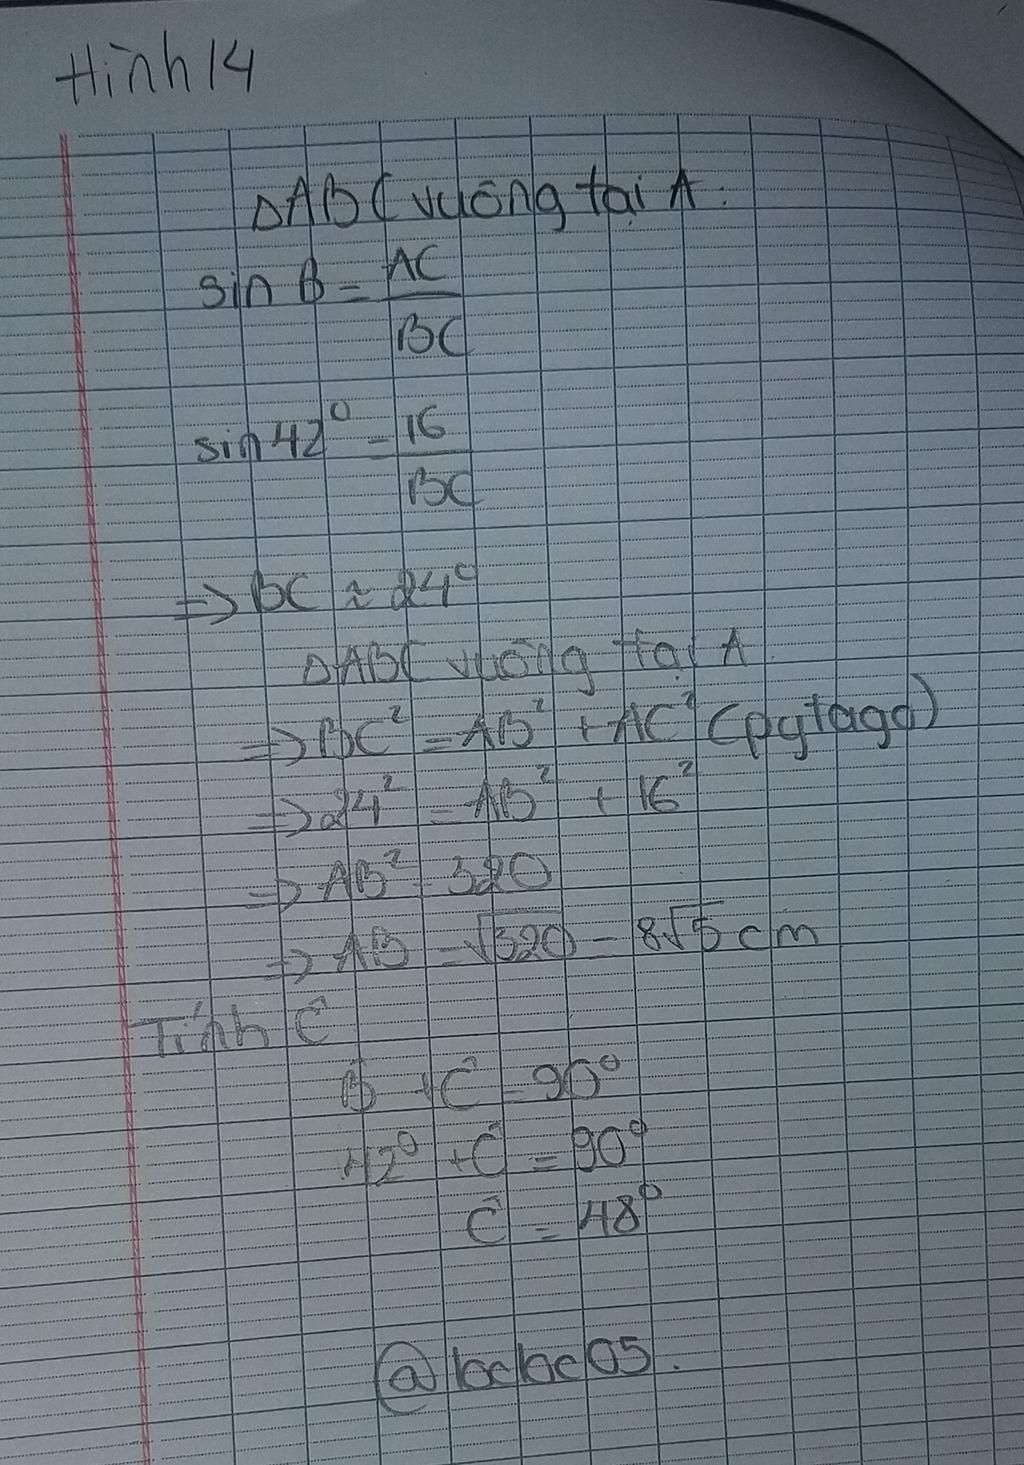 Hình 14
ΔABC vuông tại A:
sin B = AC/BC
sin 42° = 16/BC
=> BC ≈ 24°
ΔABC vuông tại A
=> BC² = AB² + AC² (pytago)
=> 24² = AB² + 16²
=> AB² = 320
=> AB = √320 = 8√5 cm
Tính Ĉ
B̂ + Ĉ = 90°
42° + Ĉ = 90°
Ĉ = 48°
@bcbc05.